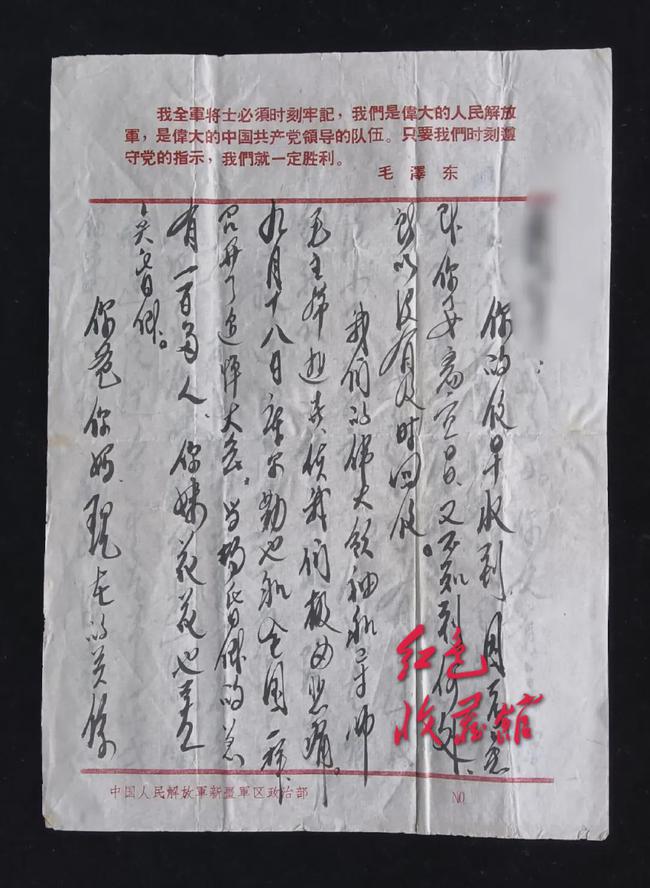 我全軍将士必須时刻牢記，我們是偉大的人民解放
軍，是偉大的中国共产党領导的队伍。只要我們时刻遵
守党的指示，我們就一定胜利。
毛澤东
你的信早收到，因
你又不知到何处、
所以没有及时回信。
我们的伟大领袖和导师
毛主席逝世使我们极为悲痛。
九月十八日库尔勒也和全国一样、
召开了追悼大会。当场昏倒的总
有一百多人、你妹花花也
哭昏倒。
你爸你妈现在的关系
红色
收藏館
中国人民解放軍新疆軍区政治部
NO